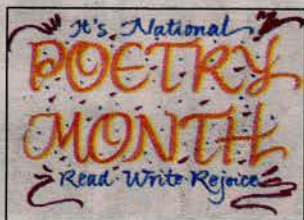 It's National
POETRY
MONTH
Read · Write · Rejoice